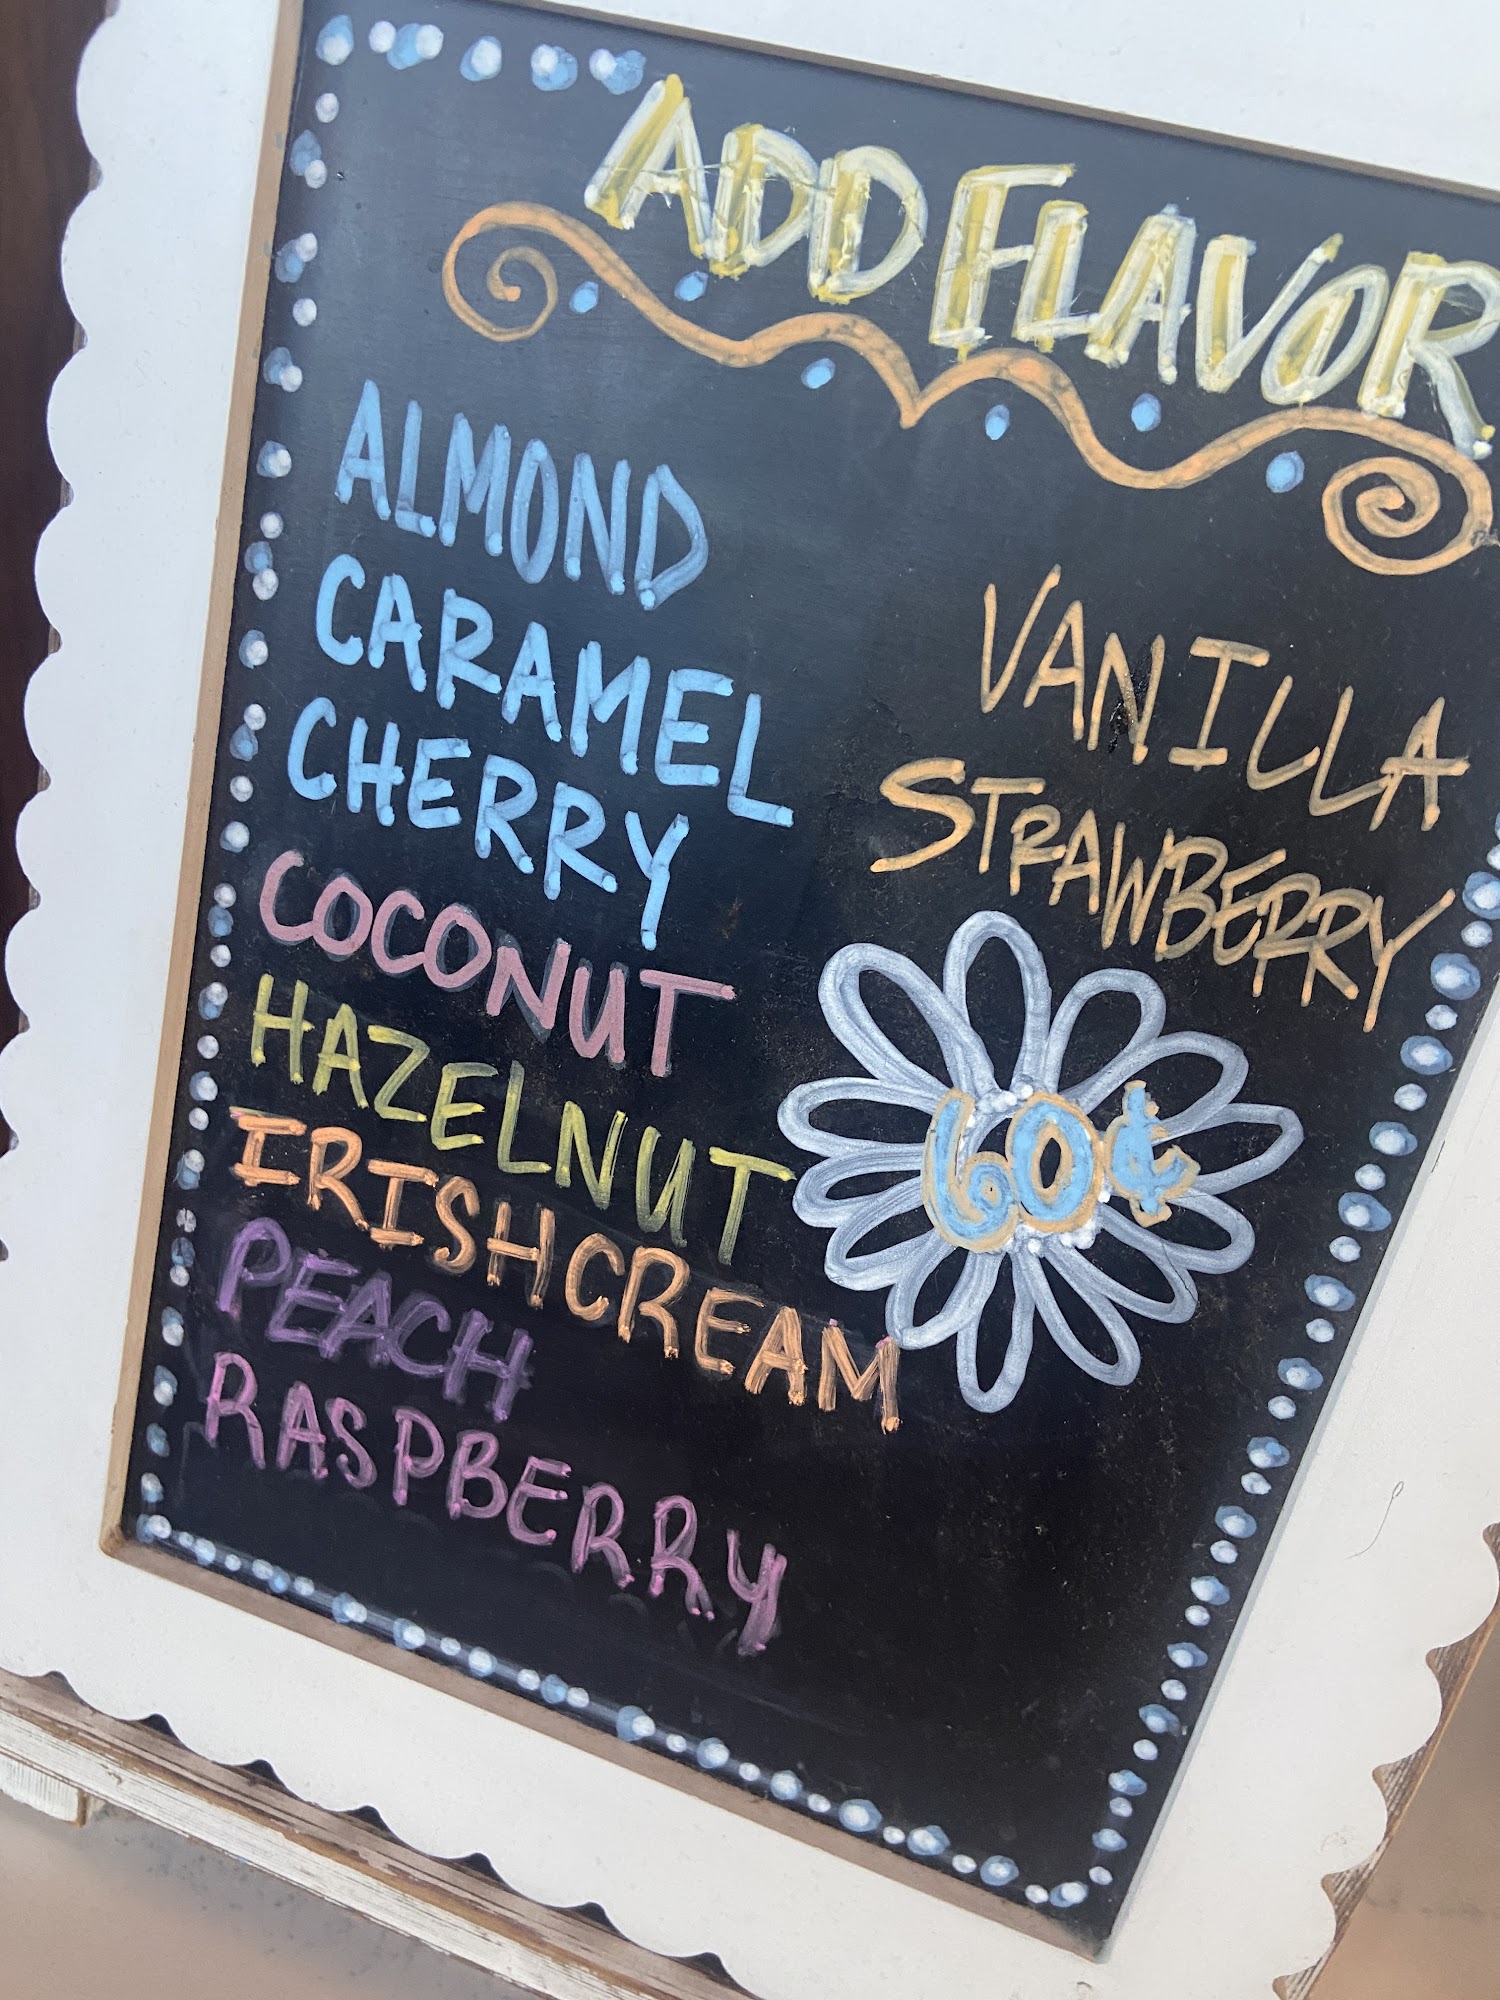 ADD FLAVOR
ALMOND
CARAMEL
CHERRY
COCONUT
HAZELNUT
IRISH CREAM
PEACH
RASPBERRY
VANILLA
STRAWBERRY
60¢